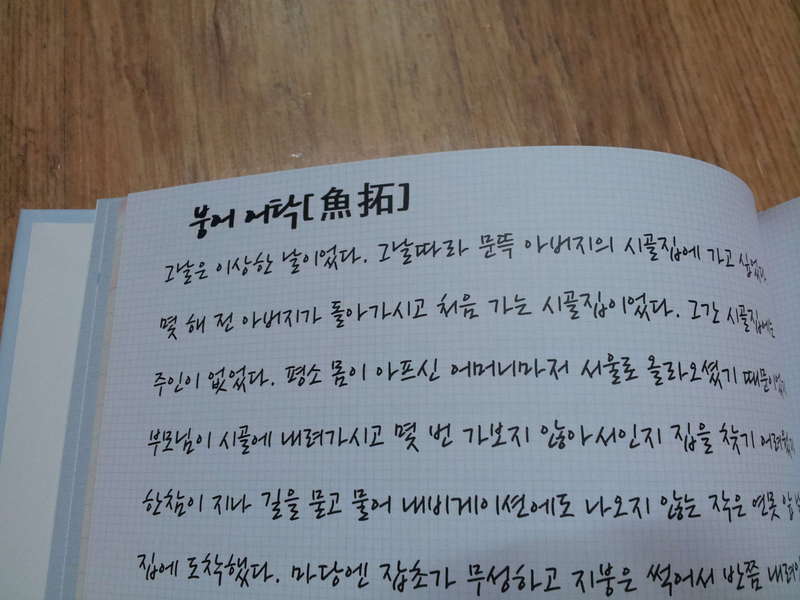 붕어 어탁[魚拓]
그날은 이상한 날이었다. 그날따라 문뜩 아버지의 시골집에 가고 싶었다.
몇 해 전 아버지가 돌아가시고 처음 가는 시골집이었다. 그간 시골집에는
주인이 없었다. 평소 몸이 아프신 어머니마저 서울로 올라오셨기 때문이었다
부모님이 시골에 내려가시고 몇 번 가보지 않아서인지 집을 찾기 어려웠다
한참이 지나 길을 묻고 물어 내비게이션에도 나오지 않는 작은 연못 앞
집에 도착했다. 마당엔 잡초가 무성하고 지붕은 썩어서 반쯤